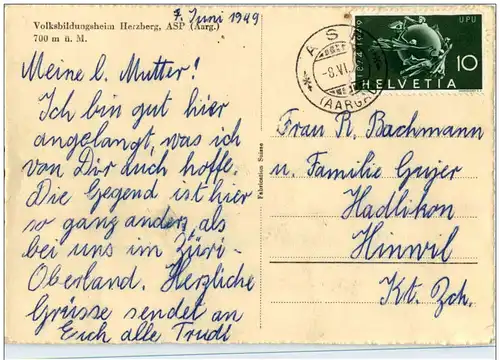 7. Juni 1949
Volksbildungsheim Herzberg, ASP (Aarg.)
700 m ü. M.
Meine l. Mutter!
Ich bin gut hier
angelangt, was ich
von Dir auch hoffe.
Die Gegend ist hier
so ganz anders, als
bei uns im Züri-
Oberland. Herzliche
Grüsse sendet an
Euch alle Trudi
Fabrication Suisse
ASP
-8.VI.
(AARGAU)
UPU
10
HELVETIA
Frau R. Bachmann
u. Familie Gujer
Hadlikon
Hinwil
Kt. Zch.